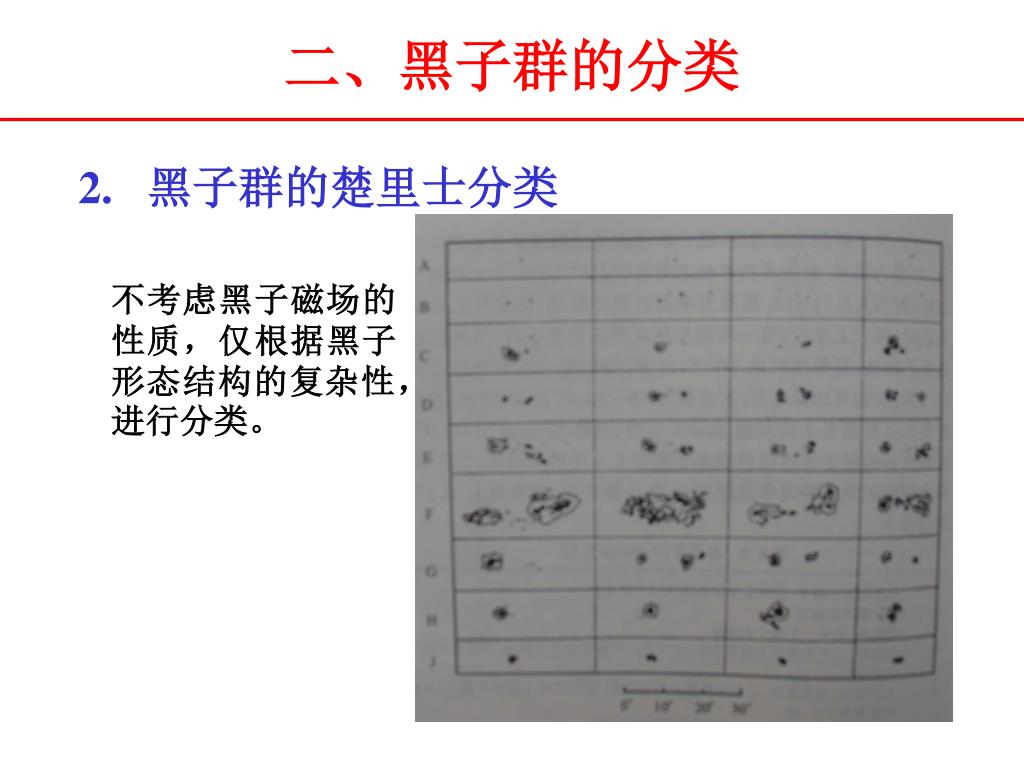 二、黑子群的分类
2. 黑子群的楚里士分类
不考虑黑子磁场的
性质，仅根据黑子
形态结构的复杂性，
进行分类。
A
B
C
D
E
F
G
H
J
0° 10° 20° 30°